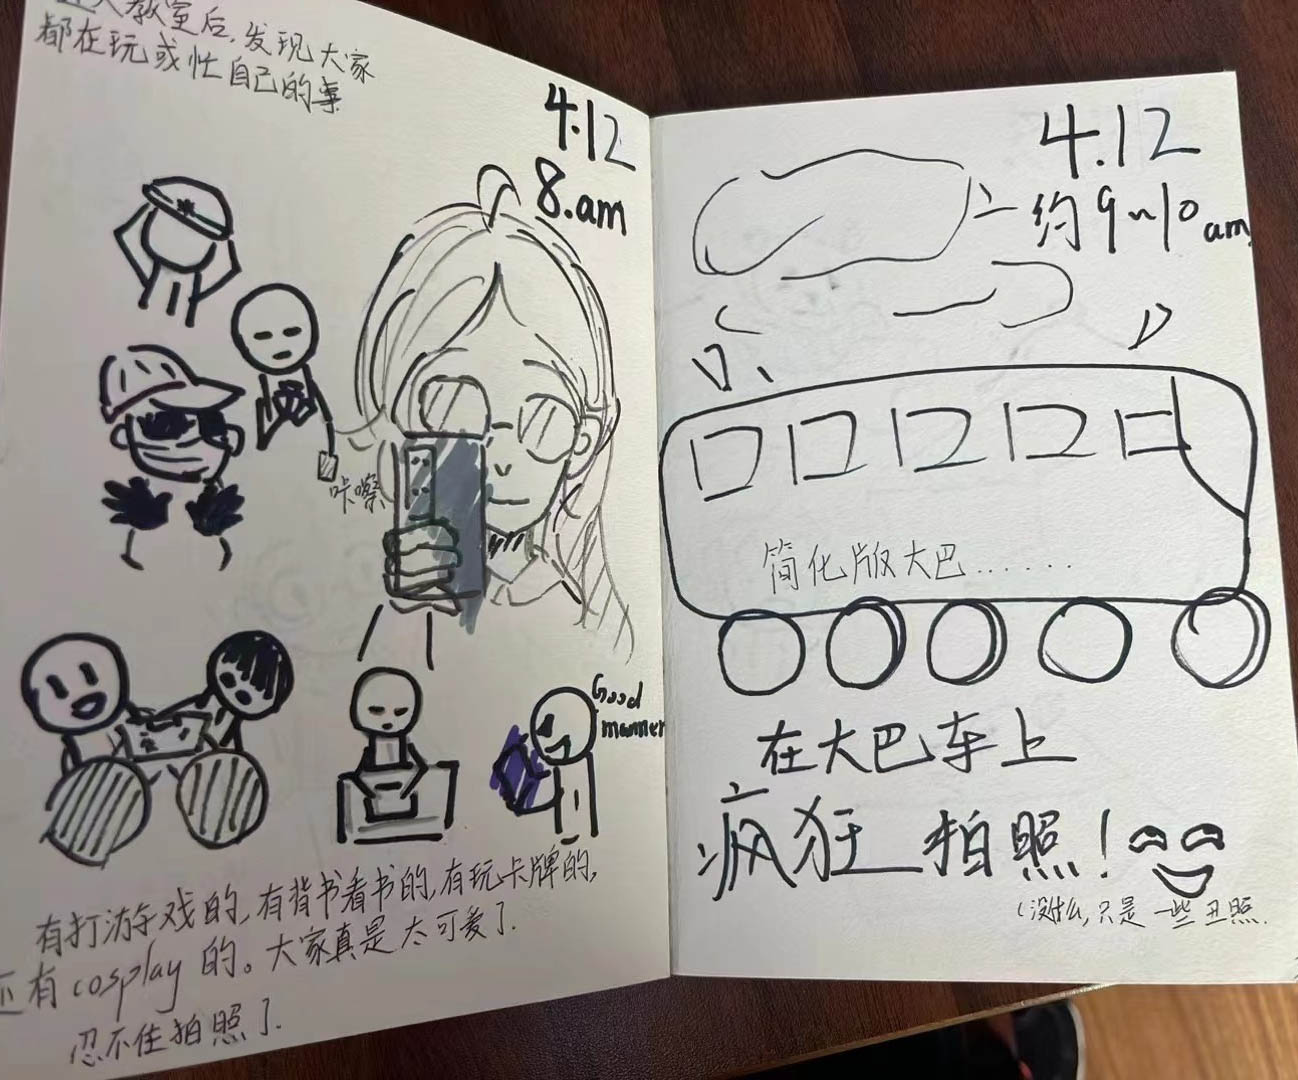 进入教室后,发现大家
都在玩或忙自己的事
4.12
8.am
咔嚓
Good
manner
有打游戏的,有背书看书的,有玩卡牌的,
还有cosplay的。大家真是太可爱了.
忍不住拍照了.
4.12
约9~10am
简化版大巴......
在大巴车上
疯狂拍照!
(没什么,只是一些丑照.